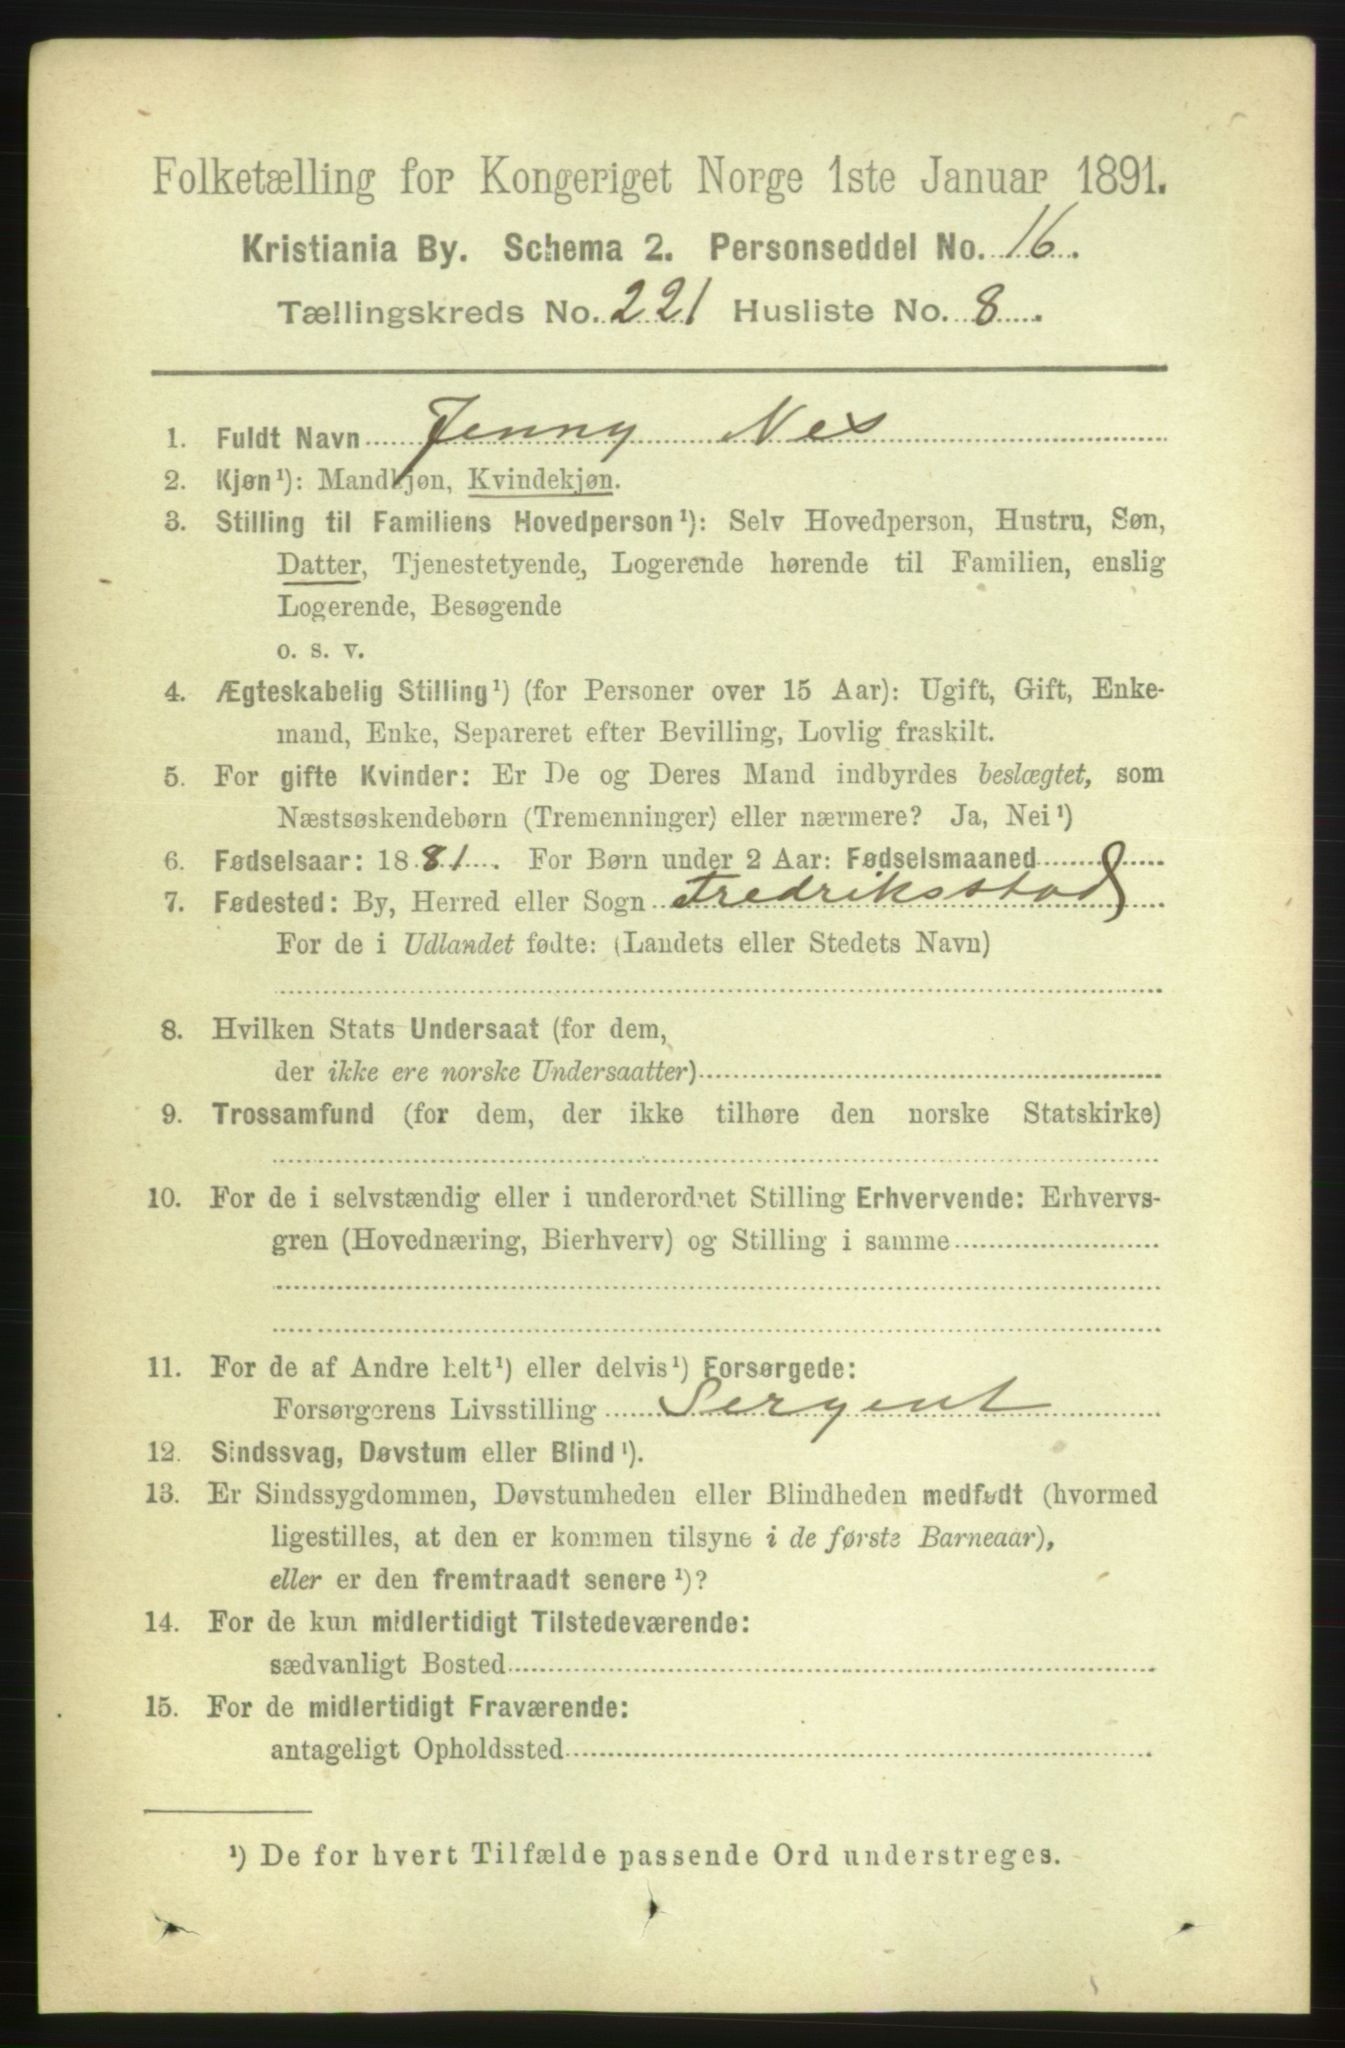 Folketælling for Kongeriget Norge 1ste Januar 1891.
Kristiania By. Schema 2. Personseddel No. 16.
Tællingskreds No. 221 Husliste No. 8.
1. Fuldt Navn Jenny Nes
2. Kjøn¹): Mandkjøn, Kvindekjøn.
3. Stilling til Familiens Hovedperson¹): Selv Hovedperson, Hustru, Søn,
Datter, Tjenestetyende, Logerende hørende til Familien, enslig
Logerende, Besøgende
o. s. v.
4. Ægteskabelig Stilling¹) (for Personer over 15 Aar): Ugift, Gift, Enke-
mand, Enke, Separeret efter Bevilling, Lovlig fraskilt.
5. For gifte Kvinder: Er De og Deres Mand indbyrdes beslægtet, som
Næstsøskendebørn (Tremenninger) eller nærmere? Ja, Nei¹)
6. Fødselsaar: 1881. For Børn under 2 Aar: Fødselsmaaned
7. Fødested: By, Herred eller Sogn Fredriksstad
For de i Udlandet fødte: (Landets eller Stedets Navn)
8. Hvilken Stats Undersaat (for dem,
der ikke ere norske Undersaatter)
9. Trossamfund (for dem, der ikke tilhøre den norske Statskirke)
10. For de i selvstændig eller i underordnet Stilling Erhvervende: Erhvervs-
gren (Hovednæring, Bierhverv) og Stilling i samme
11. For de af Andre helt¹) eller delvis¹) Forsørgede:
Forsørgerens Livsstilling Sergent
12. Sindssvag, Døvstum eller Blind¹).
13. Er Sindssygdommen, Døvstumheden eller Blindheden medfødt (hvormed
ligestilles, at den er kommen tilsyne i de første Barneaar),
eller er den fremtraadt senere¹)?
14. For de kun midlertidigt Tilstedeværende:
sædvanligt Bosted
15. For de midlertidigt Fraværende:
antageligt Opholdssted
¹) De for hvert Tilfælde passende Ord understreges.